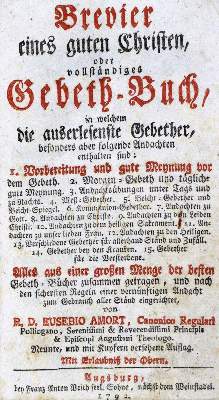 Brevier
eines guten Christen,
oder
vollständiges
Gebeth-Buch,
in welchem
die auserlesenste Gebether,
besonders aber folgende Andachten
enthalten sind:
1. Vorbereitung und gute Meynung vor
dem Gebeth. 2. Morgen-Gebeth und tägliche
gute Meynung. 3. Andachtsübungen unter Tags und
zu Nachts. 4. Meß-Gebether. 5. Beicht-Gebether und
Beicht-Spiegel. 6. Kommunion-Gebether. 7. Andachten zu
Gott. 8. Andachten zu Christo. 9. Andachten zu dem Leiden
Christi. 10. Andachten zu dem heiligen Sakrament. 11. An-
dachten zu unser lieben Frau. 12. Andachten zu den Heiligen.
13. Verschiedene Gebether für allerhand Ständ und Zufäll.
14. Gebether bey den Kranken. 15. Gebether
für die Verstorbene.
Alles aus einer großen Menge der besten
Gebeth-Bücher zusammen getragen, und nach
den sichersten Regeln einer vernünftigen Andacht
zum Gebrauch aller Ständ eingerichtet,
von
R. D. EUSEBIO AMORT, Canonico Regulari
Pollingano, Serenissimi & Reverendissimi Principis
& Episcopi Augustani Theologo.
Neunte, und mit Kupfern versehene Auflag.
Mit Erlaubniß der Obern.
Augsburg,
bey Franz Anton Veith sel. Sohne, nächst dem Weinstadel.